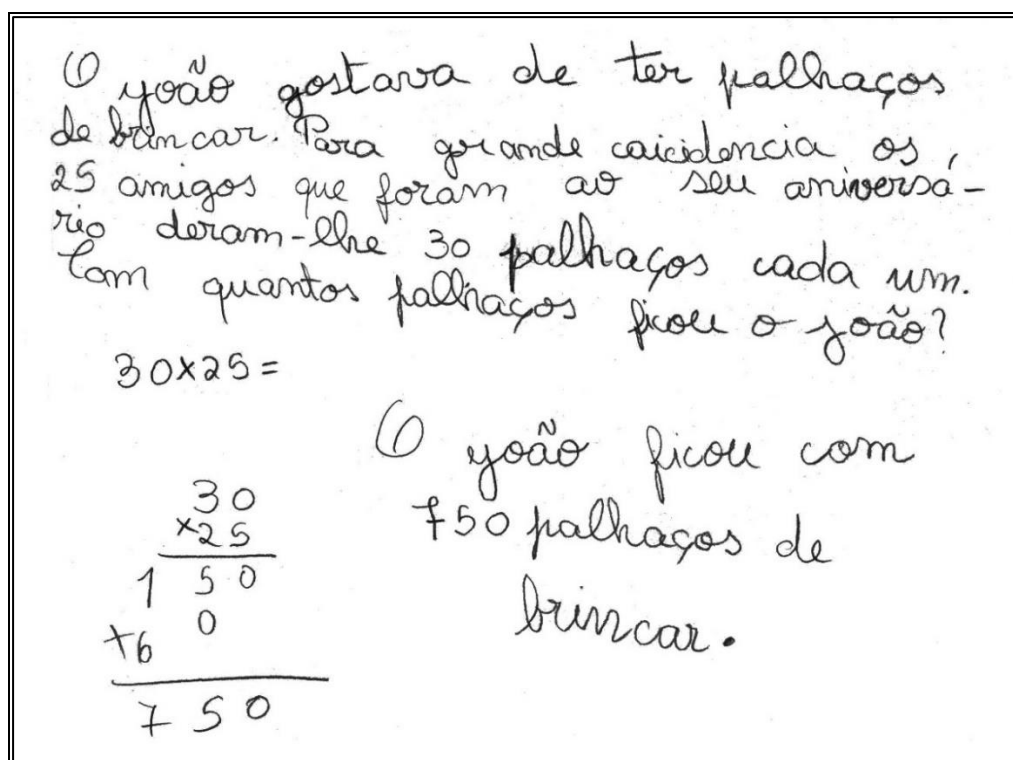 O João gostava de ter palhaços
de brincar. Para grande caicidencia os,
25 amigos que foram ao seu aniversá-
rio deram-lhe 30 palhaços cada um.
Com quantos palhaços ficou o João?
30x25=
O João ficou com
750 palhaços de
brincar.
30
x25
1 50
+6 0
7 50